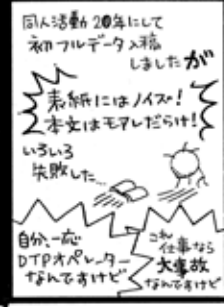 同人活動20年にして
初フルデータ入稿
しましたが
表紙にはノイズ!
本文はモアレだらけ!
いろいろ
失敗した…
自分、一応
DTPオペレーター
なんですけど
これ
仕事なら
大事故
なんですけど